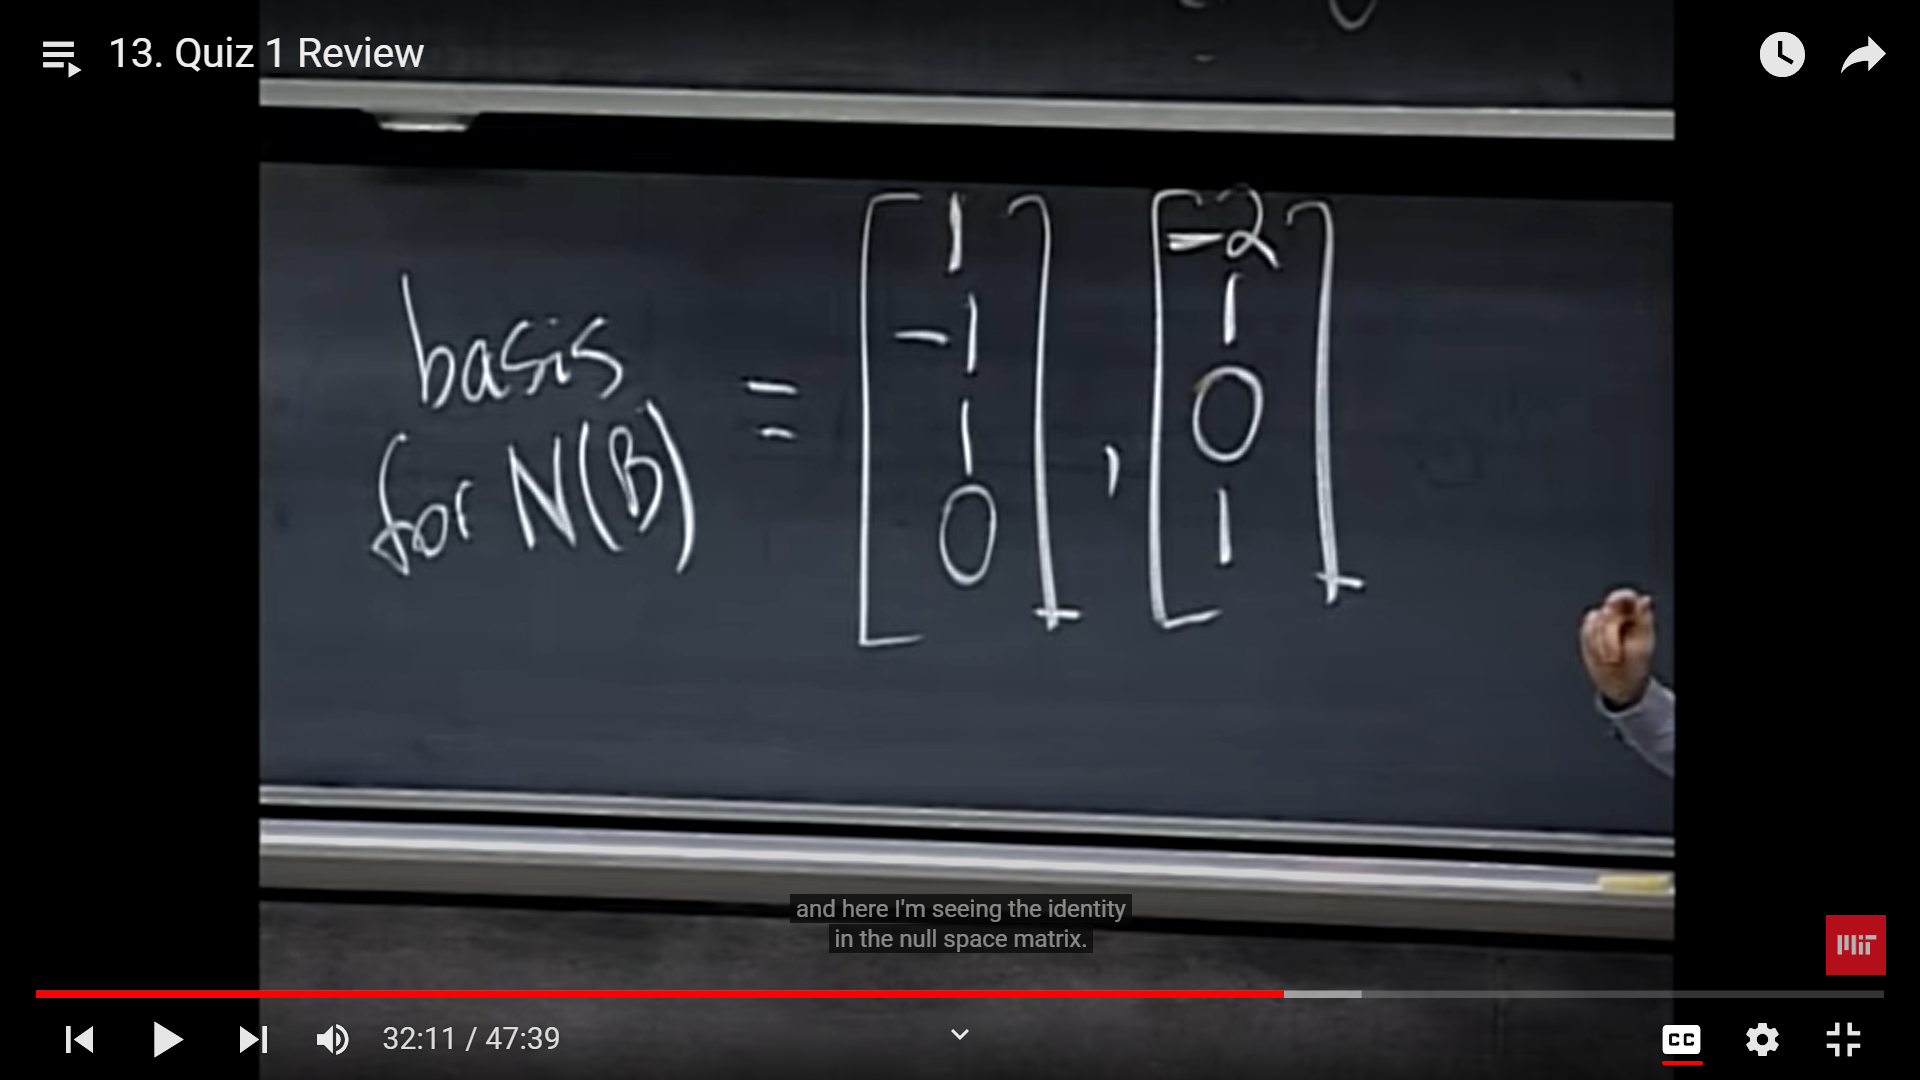 13. Quiz 1 Review
basis
for N(B)
=
1
-1
1
0
,
-2
1
0
1
and here I'm seeing the identity
in the null space matrix.
MIT
32:11 / 47:39
CC